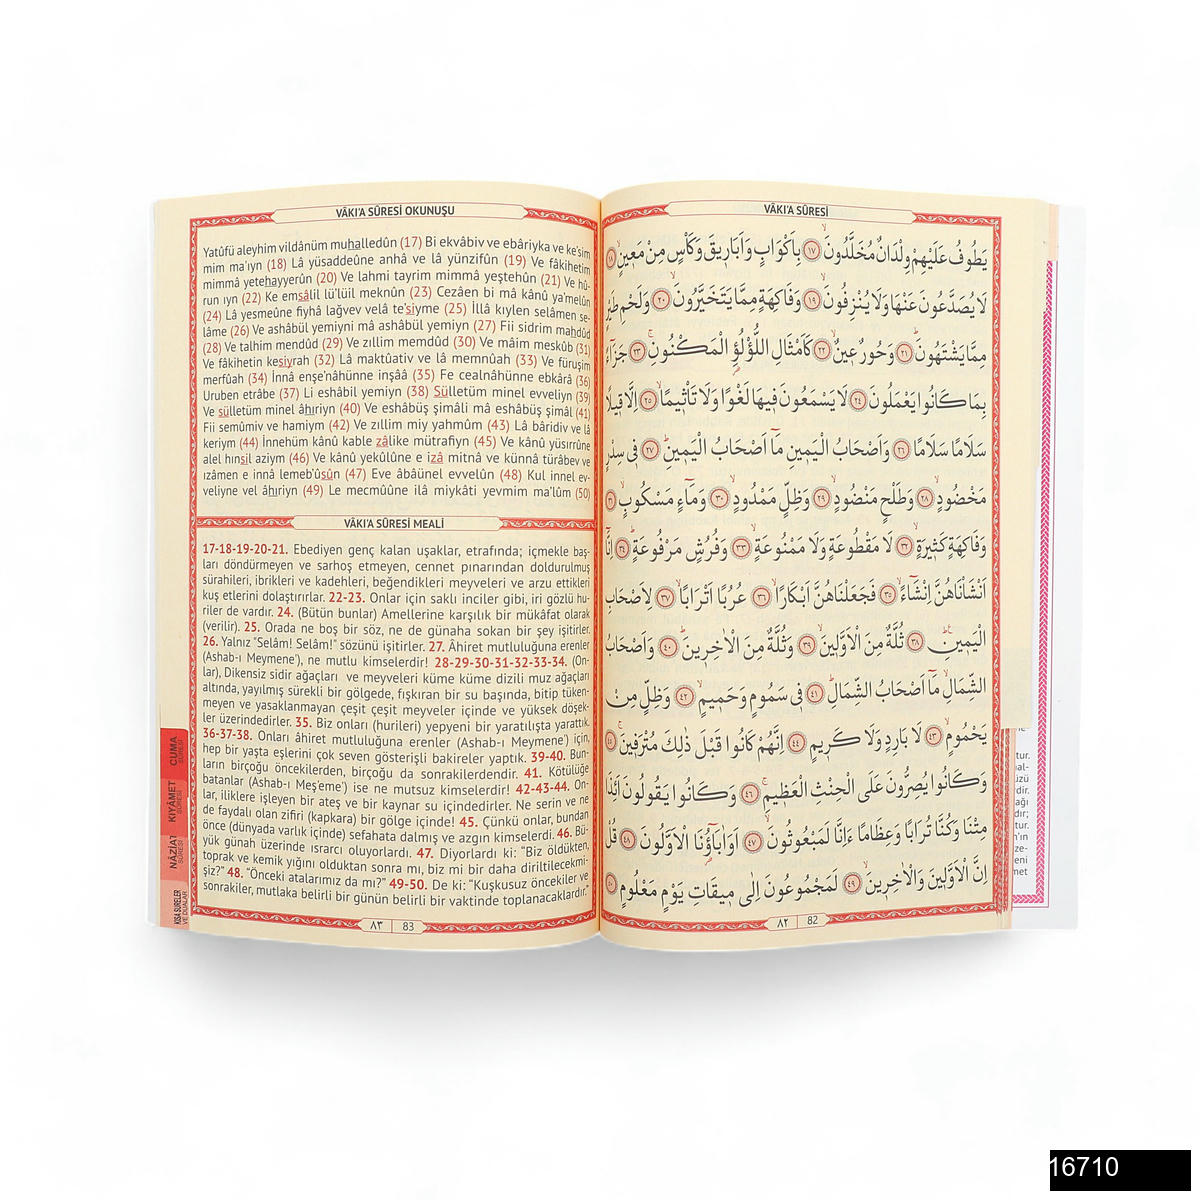 VÂKI'A SÛRESİ OKUNUŞU
Yatûfü aleyhim vildânüm muhalledûn (17) Bi ekvâbiv ve ebâriyka ve ke'sim
mim ma'iyn (18) Lâ yüsaddeûne anhâ ve lâ yünzifûn (19) Ve fâkihetim
mimmâ yetehayyerûn (20) Ve lahmi tayrim mimmâ yeştehûn (21) Ve hû-
run ıyn (22) Ke emsâlil lü'lüil meknûn (23) Cezâen bi mâ kânû ya'melûn
(24) Lâ yesmeûne fiyhâ lağvev velâ te'siyme (25) İllâ kıylen selâmen se-
lâme (26) Ve ashâbül yemiyni mâ ashâbül yemiyn (27) Fii sidrim mahdûd
(28) Ve talhim mendûd (29) Ve zıllim memdûd (30) Ve mâim meskûb (31)
Ve fâkihetin kesiyrah (32) Lâ maktûativ ve lâ memnûah (33) Ve fürüşim
merfûah (34) İnnâ enşe'nâhünne inşââ (35) Fe cealnâhünne ebkârâ (36)
Uruben etrâbe (37) Li eshâbil yemiyn (38) Sülletüm minel evveliyn (39)
Ve sülletüm minel âhıriyn (40) Ve eshâbüş şimâli mâ eshâbüş şimâl (41)
Fii semûmiv ve hamiym (42) Ve zıllim miy yahmûm (43) Lâ bâridiv ve lâ
keriym (44) İnnehüm kânû kable zâlike mütrafiyn (45) Ve kânû yüsırrûne
alel hınsil aziym (46) Ve kânû yekûlûne e izâ mitnâ ve künnâ türâbev ve
ızâmen e innâ lemeb'ûsûn (47) Eve âbâünel evvelûn (48) Kul innel ev-
veliyne vel âhıriyn (49) Le mecmûûne ilâ miykâti yevmim ma'lûm (50)
VÂKI'A SÛRESİ MEALİ
17-18-19-20-21. Ebediyen genç kalan uşaklar, etrafında; içmekle baş-
ları döndürmeyen ve sarhoş etmeyen, cennet pınarından doldurulmuş
sürahileri, ibrikleri ve kadehleri, beğendikleri meyveleri ve arzu ettikleri
kuş etlerini dolaştırırlar. 22-23. Onlar için saklı inciler gibi, iri gözlü hu-
riler de vardır. 24. (Bütün bunlar) Amellerine karşılık bir mükâfat olarak
(verilir). 25. Orada ne boş bir söz, ne de günaha sokan bir şey işitirler.
26. Yalnız "Selâm! Selâm!" sözünü işitirler. 27. Âhiret mutluluğuna erenler
(Ashab-ı Meymene'), ne mutlu kimselerdir! 28-29-30-31-32-33-34. (On-
lar), Dikensiz sidir ağaçları ve meyveleri küme küme dizili muz ağaçları
altında, yayılmış sürekli bir gölgede, fışkıran bir su başında, bitip tüken-
meyen ve yasaklanmayan çeşit çeşit meyveler içinde ve yüksek döşek-
ler üzerindedirler. 35. Biz onları (hurileri) yepyeni bir yaratılışta yarattık.
36-37-38. Onları âhiret mutluluğuna erenler (Ashab-ı Meymene') için,
hep bir yaşta eşlerini çok seven gösterişli bakireler yaptık. 39-40. Bun-
ların birçoğu öncekilerden, birçoğu da sonrakilerdendir. 41. Kötülüğe
batanlar (Ashab-ı Meş'eme') ise ne mutsuz kimselerdir! 42-43-44. On-
lar, iliklere işleyen bir ateş ve bir kaynar su içindedirler. Ne serin ve ne
de faydalı olan zifiri (kapkara) bir gölge içinde! 45. Çünkü onlar, bundan
önce (dünyada varlık içinde) sefahata dalmış ve azgın kimselerdi. 46. Bü-
yük günah üzerinde ısrarcı oluyorlardı. 47. Diyorlardı ki: "Biz öldükten,
toprak ve kemik yığını olduktan sonra mı, biz mi bir daha diriltilecekmi-
şiz?" 48. "Önceki atalarımız da mı?" 49-50. De ki: "Kuşkusuz öncekiler ve
sonrakiler, mutlaka belirli bir günün belirli bir vaktinde toplanacaklardır."
٨٣ 83
CUMA SÛRESİ
KIYÂMET SÛRESİ
NÂZİAT SÛRESİ
KISA SURELER VE DUALAR
VÂKI'A SÛRESİ
يَطُوفُ عَلَيْهِمْ وِلْدَانٌ مُخَلَّدُونَ ۙ ﴿١٧﴾ بِاَكْوَابٍ وَاَبَارِيقَ وَكَأْسٍ مِنْ مَعِينٍ ۙ ﴿١٨﴾
لَا يُصَدَّعُونَ عَنْهَا وَلَا يُنْزِفُونَ ۙ ﴿١٩﴾ وَفَاكِهَةٍ مِمَّا يَتَخَيَّرُونَ ۙ ﴿٢٠﴾ وَلَحْمِ طَيْرٍ
مِمَّا يَشْتَهُونَ ۜ ﴿٢١﴾ وَحُورٌ عِينٌ ۙ ﴿٢٢﴾ كَاَمْثَالِ اللُّؤْلُؤِ الْمَكْنُونِ ۚ ﴿٢٣﴾ جَزَٓاءً
بِمَا كَانُوا يَعْمَلُونَ ﴿٢٤﴾ لَا يَسْمَعُونَ فِيهَا لَغْوًا وَلَا تَأْثِيمًا ۙ ﴿٢٥﴾ اِلَّا قِيلًا
سَلَامًا سَلَامًا ﴿٢٦﴾ وَاَصْحَابُ الْيَمِينِ مَٓا اَصْحَابُ الْيَمِينِ ۜ ﴿٢٧﴾ فِى سِدْرٍ
مَخْضُودٍ ۙ ﴿٢٨﴾ وَطَلْحٍ مَنْضُودٍ ۙ ﴿٢٩﴾ وَظِلٍّ مَمْدُودٍ ۙ ﴿٣٠﴾ وَمَٓاءٍ مَسْكُوبٍ ۙ ﴿٣١﴾
وَفَاكِهَةٍ كَثِيرَةٍ ۙ ﴿٣٢﴾ لَا مَقْطُوعَةٍ وَلَا مَمْنُوعَةٍ ۙ ﴿٣٣﴾ وَفُرُشٍ مَرْفُوعَةٍ ۜ ﴿٣٤﴾ اِنَّٓا
اَنْشَأْنَاهُنَّ اِنْشَٓاءً ۙ ﴿٣٥﴾ فَجَعَلْنَاهُنَّ اَبْكَارًا ۙ ﴿٣٦﴾ عُرُبًا اَتْرَابًا ۙ ﴿٣٧﴾ لِاَصْحَابِ
الْيَمِينِ ۜ ﴿٣٨﴾ ثُلَّةٌ مِنَ الْاَوَّلِينَ ۙ ﴿٣٩﴾ وَثُلَّةٌ مِنَ الْاٰخِرِينَ ۜ ﴿٤٠﴾ وَاَصْحَابُ
الشِّمَالِ مَٓا اَصْحَابُ الشِّمَالِ ۜ ﴿٤١﴾ فِى سَمُومٍ وَحَمِيمٍ ۙ ﴿٤٢﴾ وَظِلٍّ مِنْ
يَحْمُومٍ ۙ ﴿٤٣﴾ لَا بَارِدٍ وَلَا كَرِيمٍ ﴿٤٤﴾ اِنَّهُمْ كَانُوا قَبْلَ ذٰلِكَ مُتْرَفِينَ ۚ ﴿٤٥﴾
وَكَانُوا يُصِرُّونَ عَلَى الْحِنْثِ الْعَظِيمِ ۚ ﴿٤٦﴾ وَكَانُوا يَقُولُونَ اَئِذَا
مِتْنَا وَكُنَّا تُرَابًا وَعِظَامًا ءَاِنَّا لَمَبْعُوثُونَ ۙ ﴿٤٧﴾ اَوَاٰبَٓاؤُنَا الْاَوَّلُونَ ﴿٤٨﴾ قُلْ
اِنَّ الْاَوَّلِينَ وَالْاٰخِرِينَ ۙ ﴿٤٩﴾ لَمَجْمُوعُونَ اِلٰى مِيقَاتِ يَوْمٍ مَعْلُومٍ ﴿٥٠﴾
٨٢ 82
16710